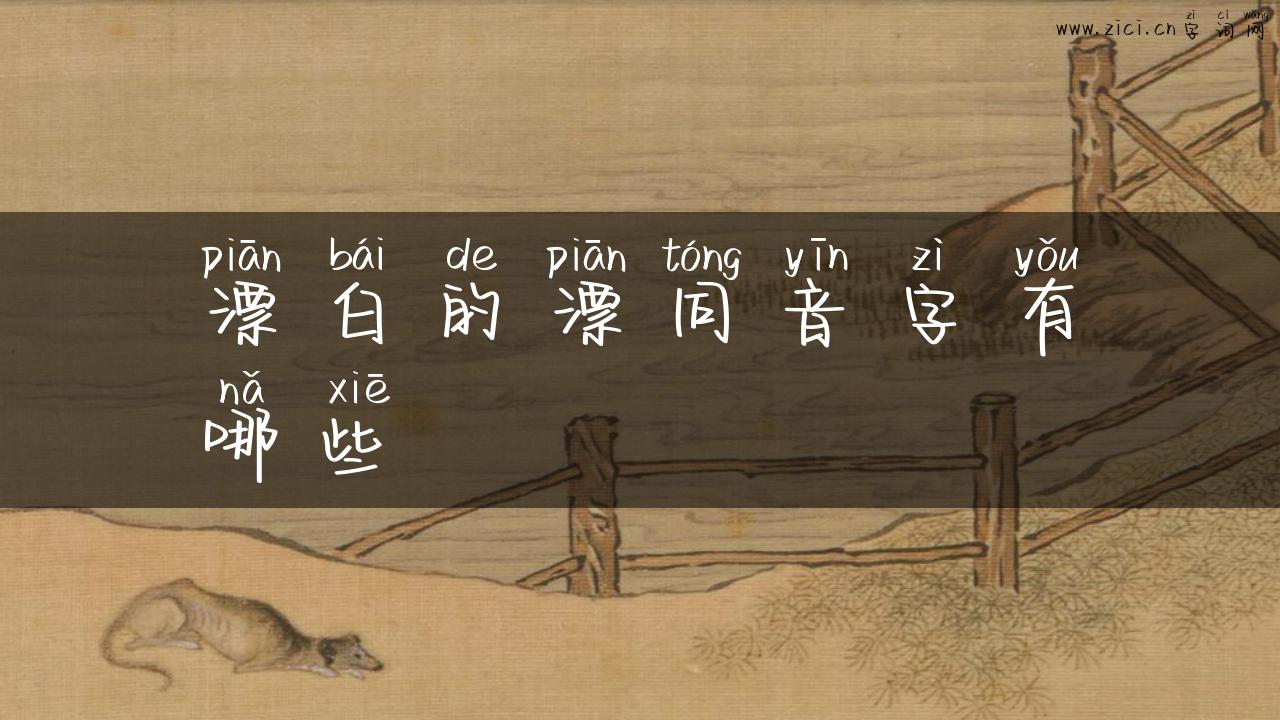 zì cí wǎng
www.zici.cn 字词网
piān bái de piān tóng yīn zì yǒu
漂白的漂同音字有
nǎ xiē
哪些